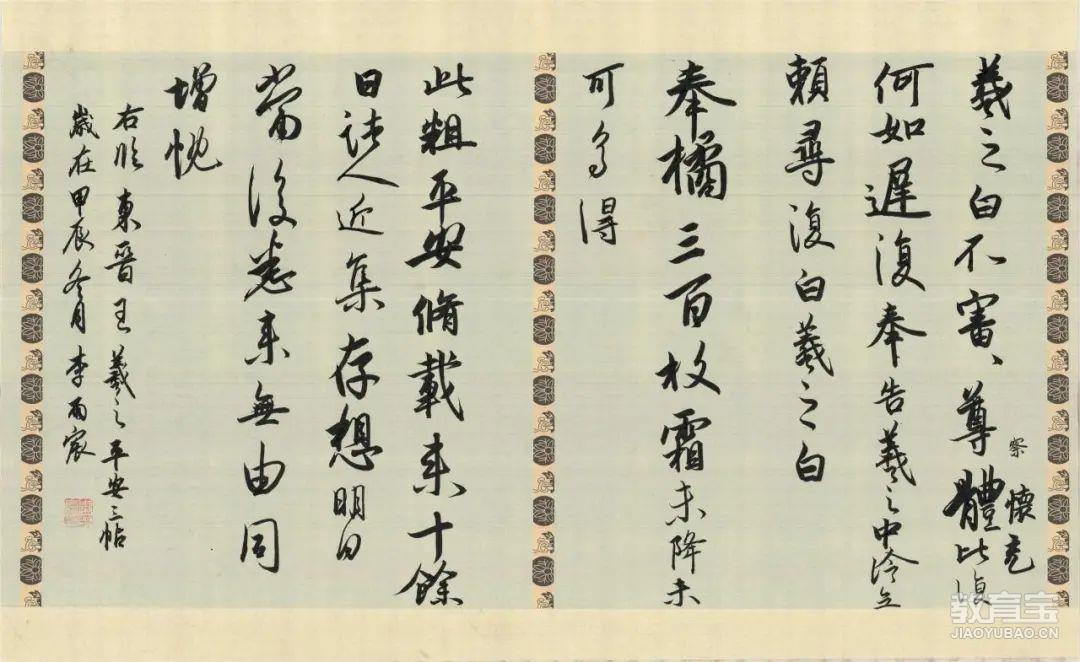 羲之白不審、尊體比復
察懷充
何如遲復奉告羲之中冷無
賴尋復白羲之白
奉橘三百枚霜未降未
可多得
此粗平安脩載來十餘
日諸人近集存想明日
當復悉來無由同
增慨
右臨東晉王羲之平安三帖
歲在甲辰冬月李雨宸
教育宝
JIAOYUBAO.CN